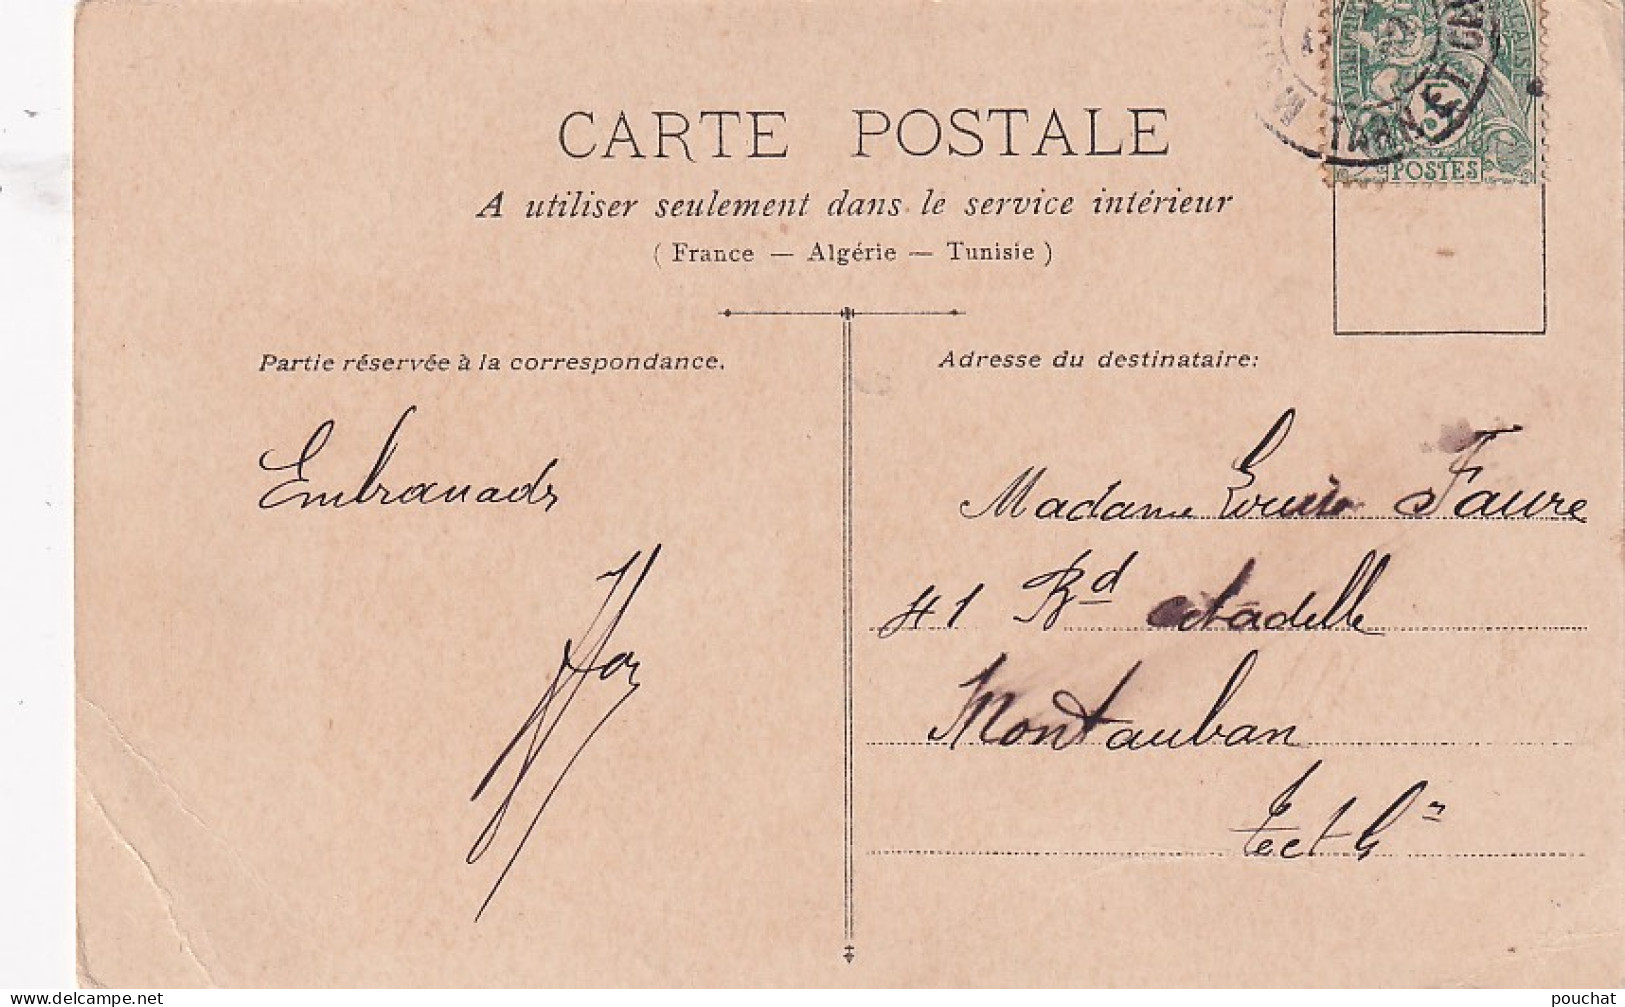 CARTE POSTALE
A utiliser seulement dans le service intérieur
( France — Algérie — Tunisie )
POSTES
TARN ET
Partie réservée à la correspondance.
Adresse du destinataire:
Madame Louis Faure
41 Bd citadelle
Montauban
T et Gn
www.delcampe.net
pouchat